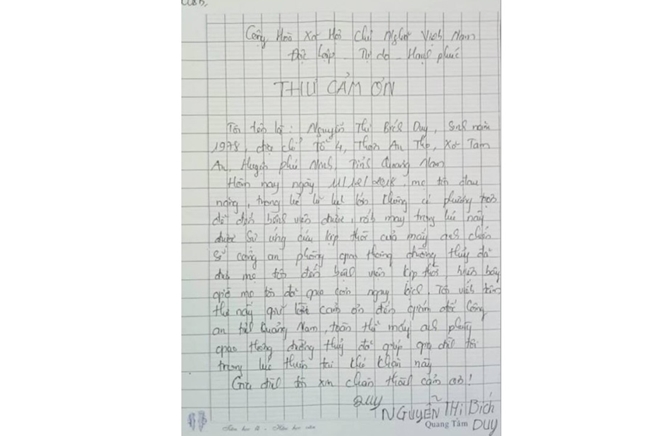 Cộng Hoà Xã Hội Chủ Nghĩa Việt Nam
Độc lập - Tự do - Hạnh phúc
THƯ CẢM ƠN
Tôi tên là: Nguyễn Thị Bích Duy, Sinh năm
1978, địa chỉ Tổ 4, Thôn An Thọ, Xã Tam
An, Huyện phú Ninh, Tỉnh Quảng Nam
Hôm nay ngày 2018 mẹ tôi đau
nặng, trong lúc lũ lụt lớn không có phương tiện
để đến bệnh viện được, rất may trong lúc này
được sự ứng cứu kịp thời của mấy anh chiến
sĩ công an phòng giao thông đường thuỷ đã
đưa mẹ tôi đến bệnh viện kịp thời hiện bây
giờ mẹ tôi đã qua cơn nguy kịch. Tôi viết bức
thư này gửi lời cảm ơn đến giám đốc Công
an tỉnh Quảng Nam, toàn thể mấy anh phòng
giao thông đường thuỷ đã giúp gia đình tôi
trong lúc thiên tai khó khăn này
Gia đình tôi xin chân thành cảm ơn!
Duy
NGUYỄN THỊ BÍCH
DUY
Quang Tâm